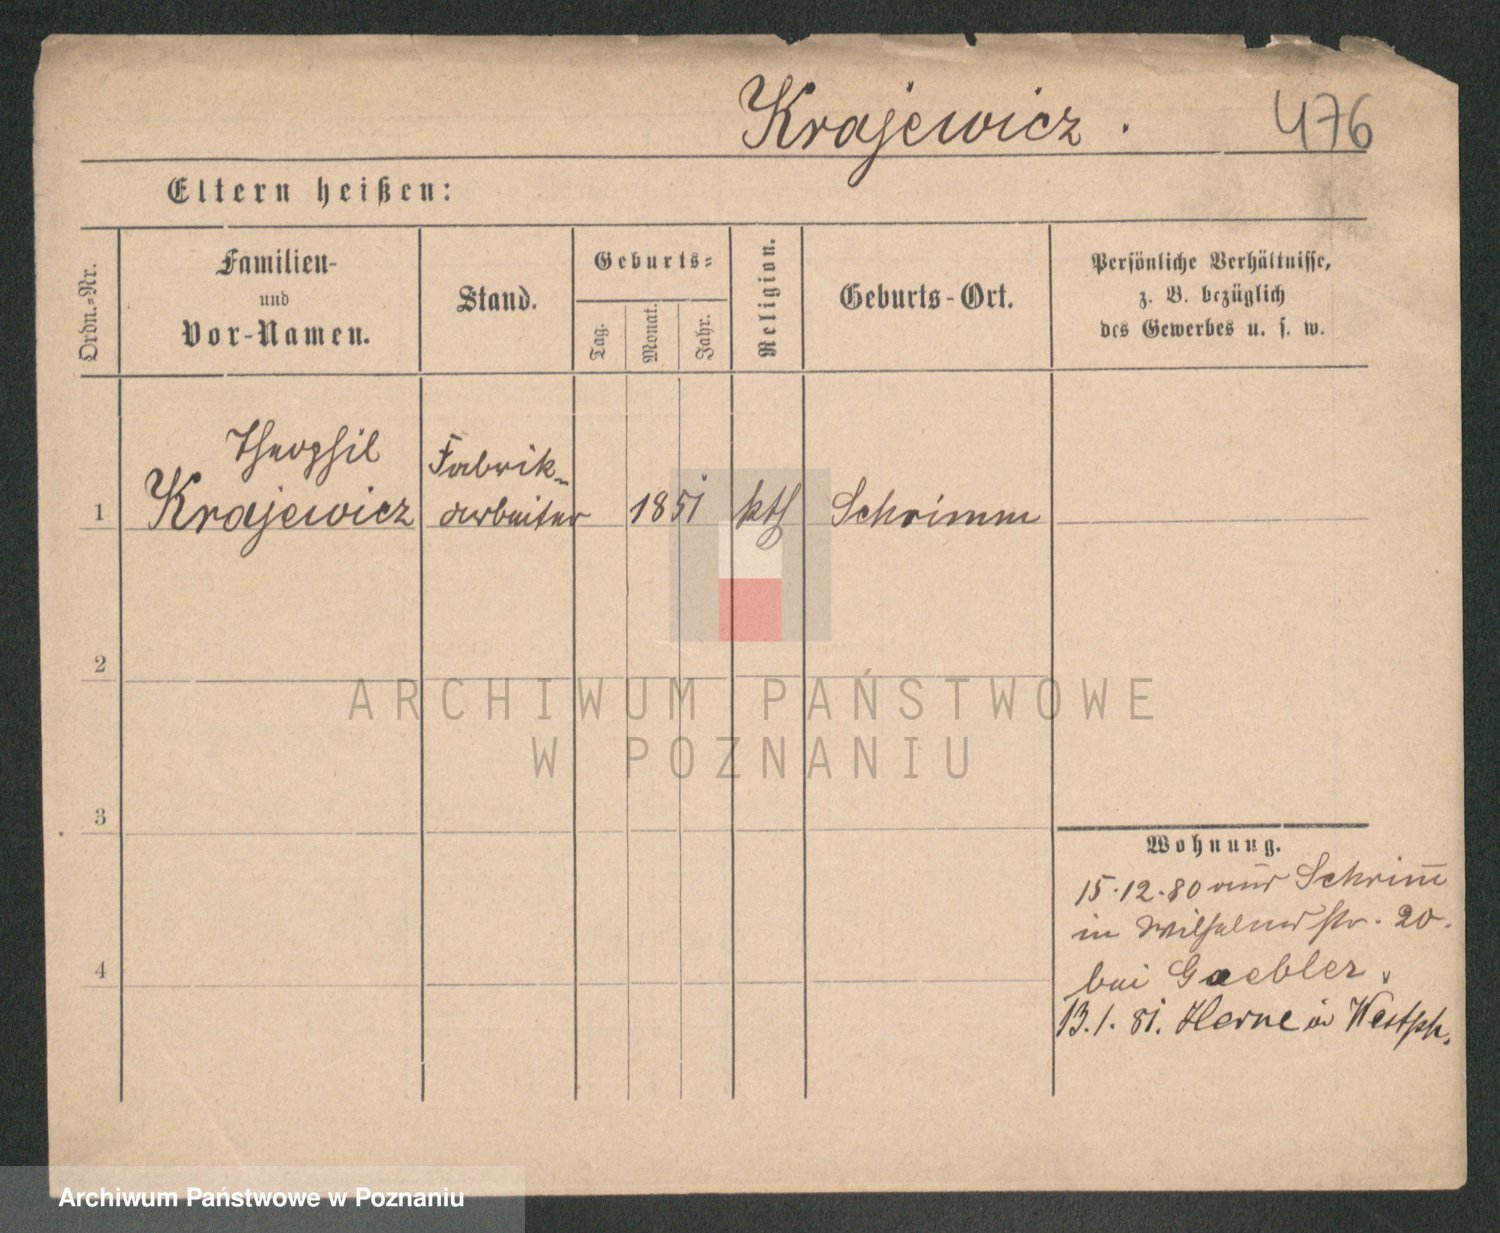 Krajewicz.
476
Eltern heißen:
Ordn.-Nr.
Familien-
und
Vor-Namen.
Stand.
Geburts-
Tag.
Monat.
Jahr.
Religion.
Geburts-Ort.
Persönliche Verhältnisse,
z. B. bezüglich
des Gewerbes u. s. w.
1
Theophil
Krajewicz
Fabrik-
arbeiter
1851
kth
Schrimm
2
3
4
Wohnung.
15.12.80 aus Schrim̅
in Wilhelms str. 20.
bei Gaebler.
13.1.81. Herne in Westph.
ARCHIWUM PAŃSTWOWE
W POZNANIU
Archiwum Państwowe w Poznaniu